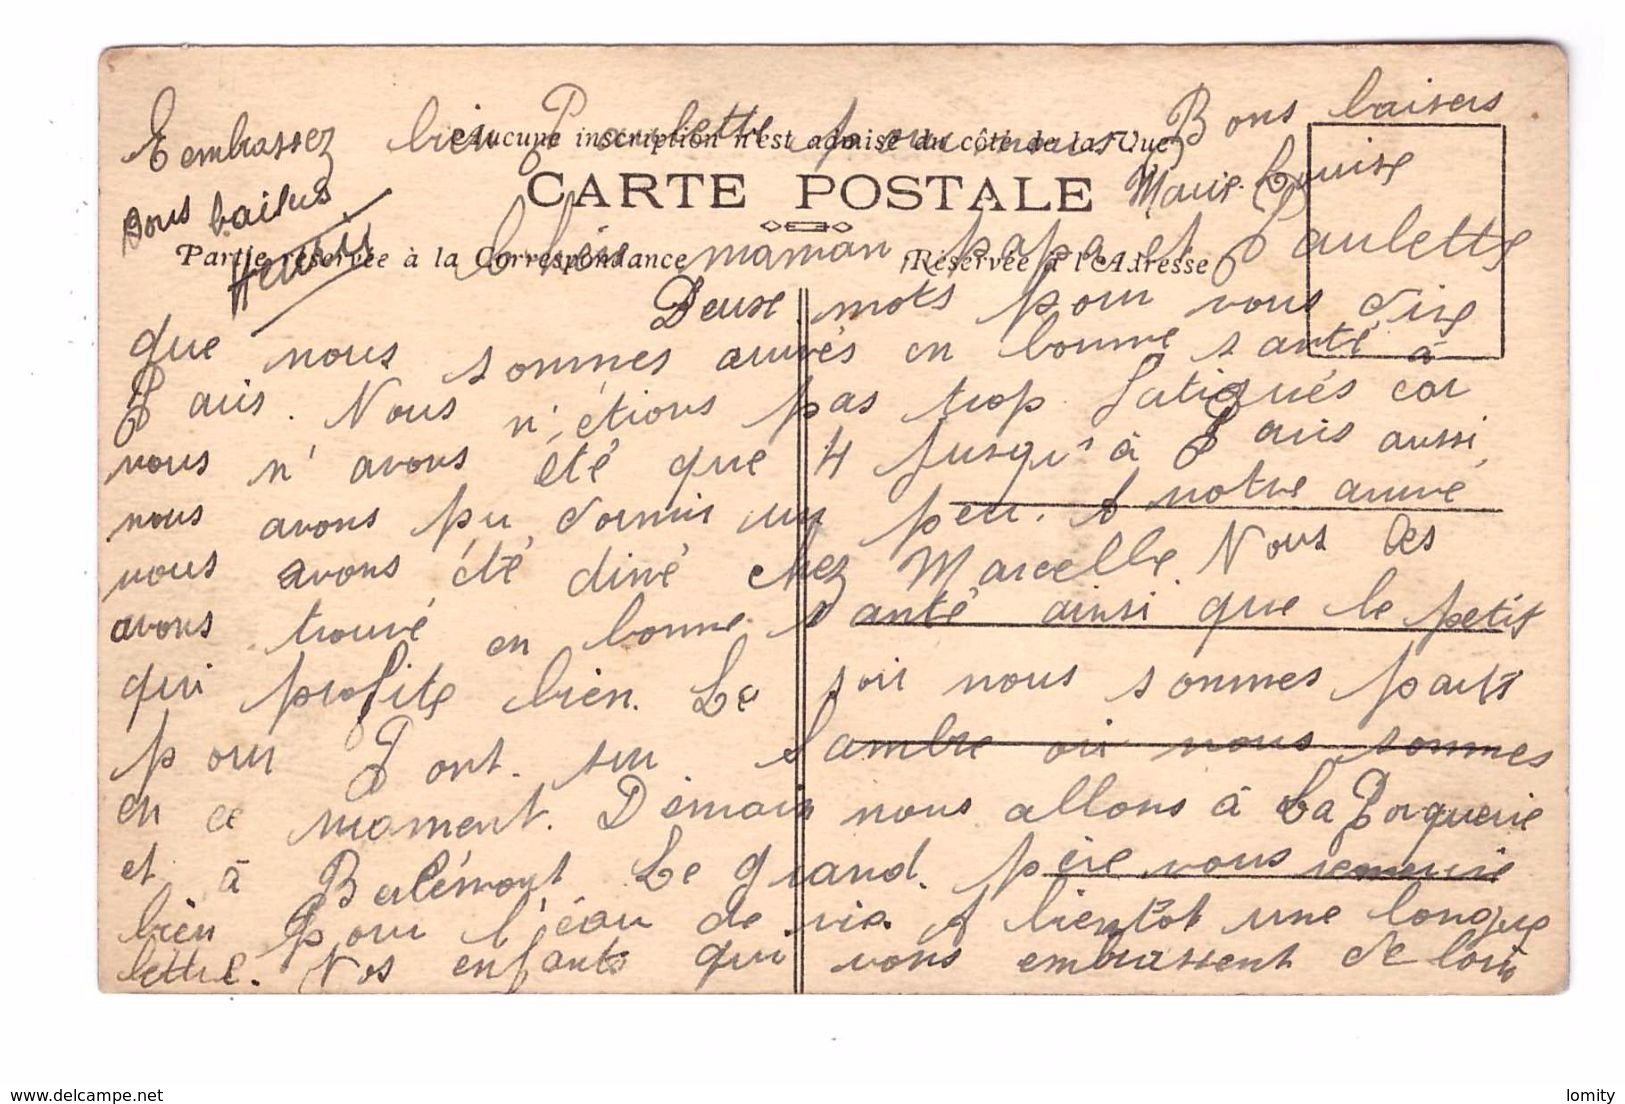 Embrassez bien Paulette pour nous Bons baisers
Aucune inscription n'est admise du côté de la Vue
Marie-Louise
CARTE POSTALE
Bons baisers
Henri
Chère maman papa et Paulette
Partie réservée à la Correspondance
Réservée à l'Adresse
Deux mots pour vous dire
que nous sommes arrivés en bonne santé à
Paris. Nous n'étions pas trop fatigués car
nous n'avons été que 4 jusqu'à Paris aussi
nous avons pu dormir un peu. A notre arrivé
nous avons été diné chez Marcelle. Nous les
avons trouvé en bonne santé ainsi que le petit
qui profite bien. Le soir nous sommes partis
pour Pont sur Sambre où nous sommes
en ce moment. Demain nous allons à La Porquerie
et à Berlémont. Le grand père vous remercie
bien pour l'éau de vie. A bientôt une longue
lettre. Nos enfants qui vous embrassent de loin
delcampe.net
lomity